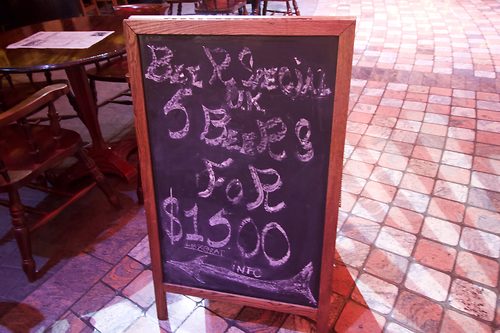 BEER SPECIAL
5 BEER'S
FOR
$1500
INFO